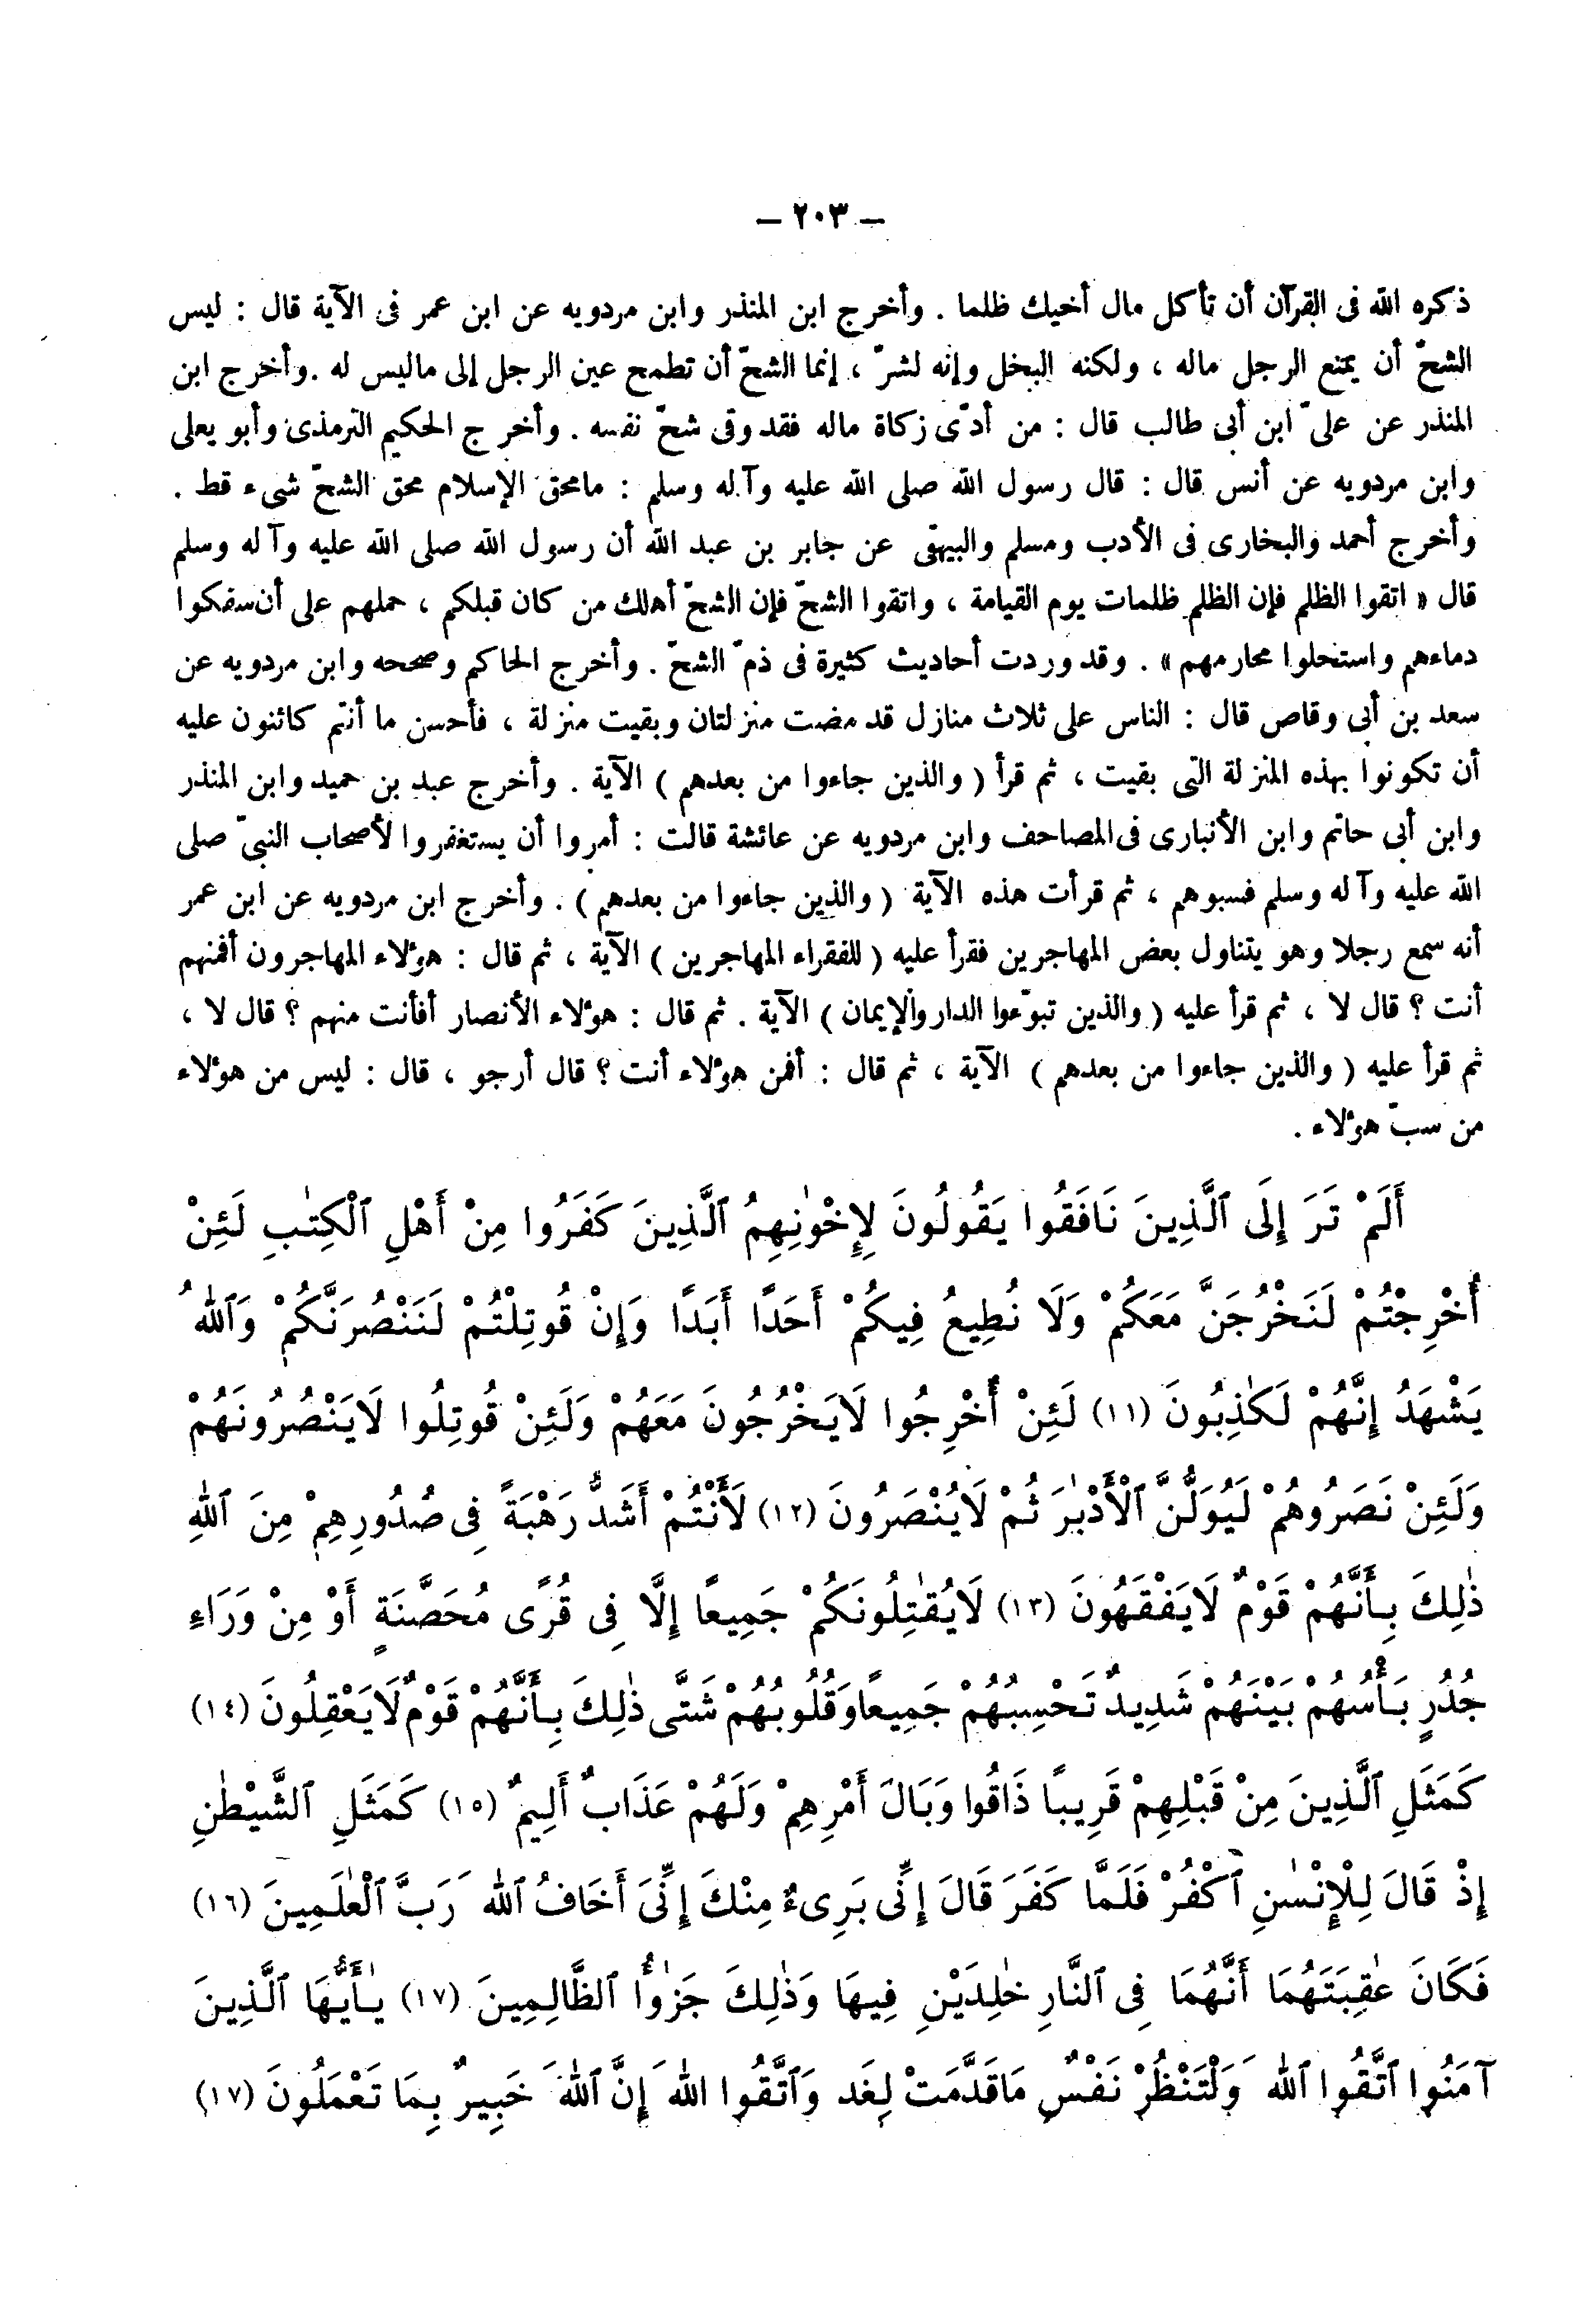 – ٢٠٣ –
ذكره الله فى القرآن أن تأكل مال أخيك ظلما . وأخرج ابن المنذر وابن مردويه عن ابن عمر فى الآية قال : ليس
الشحّ أن يمنع الرجل ماله ، ولكنه البخل وإنه لشرّ ، إنما الشحّ أن تطمح عين الرجل إلى ماليس له . وأخرج ابن
المنذر عن علىّ ابن أبى طالب قال : من أدّى زكاة ماله فقد وقى شحّ نفسه . وأخرج الحكيم الترمذى وأبو يعلى
وابن مردويه عن أنس قال : قال رسول الله صلى الله عليه وآله وسلم : مامحق الإسلام محق الشحّ شىء قط .
وأخرج أحمد والبخارى فى الأدب ومسلم والبيهقى عن جابر بن عبد الله أن رسول الله صلى الله عليه وآله وسلم
قال « اتقوا الظلم فإن الظلم ظلمات يوم القيامة ، واتقوا الشحّ فإن الشحّ أهلك من كان قبلكم ، حملهم على أن سفكوا
دماءهم واستحلوا محارمهم » . وقد وردت أحاديث كثيرة فى ذمّ الشحّ . وأخرج الحاكم وصححه وابن مردويه عن
سعد بن أبى وقاص قال : الناس على ثلاث منازل قد مضت منزلتان وبقيت منزلة ، فأحسن ما أنتم كائنون عليه
أن تكونوا بهذه المنزلة التى بقيت ، ثم قرأ ( والذين جاءوا من بعدهم ) الآية . وأخرج عبد بن حميد وابن المنذر
وابن أبى حاتم وابن الأنبارى فى المصاحف وابن مردويه عن عائشة قالت : أمروا أن يستغفروا لأصحاب النبىّ صلى
الله عليه وآله وسلم فسبوهم ، ثم قرأت هذه الآية ( والذين جاءوا من بعدهم ) . وأخرج ابن مردويه عن ابن عمر
أنه سمع رجلا وهو يتناول بعض المهاجرين فقرأ عليه ( للفقراء المهاجرين ) الآية ، ثم قال : هؤلاء المهاجرون أفمنهم
أنت ؟ قال لا ، ثم قرأ عليه ( والذين تبوّءوا الدار والإيمان ) الآية . ثم قال : هؤلاء الأنصار أفأنت منهم ؟ قال لا ،
ثم قرأ عليه ( والذين جاءوا من بعدهم ) الآية ، ثم قال : أفمن هؤلاء أنت ؟ قال أرجو ، قال : ليس من هؤلاء
من سبّ هؤلاء .
أَلَمْ تَرَ إِلَى ٱلَّذِينَ نَافَقُوا يَقُولُونَ لِإِخْوٰنِهِمُ ٱلَّذِينَ كَفَرُوا مِنْ أَهْلِ ٱلْكِتٰبِ لَئِنْ
أُخْرِجْتُمْ لَنَخْرُجَنَّ مَعَكُمْ وَلَا نُطِيعُ فِيكُمْ أَحَدًا أَبَدًا وَإِنْ قُوتِلْتُمْ لَنَنْصُرَنَّكُمْ وَٱللهُ
يَشْهَدُ إِنَّهُمْ لَكٰذِبُونَ (١١) لَئِنْ أُخْرِجُوا لَايَخْرُجُونَ مَعَهُمْ وَلَئِنْ قُوتِلُوا لَايَنْصُرُونَهُمْ
وَلَئِنْ نَصَرُوهُمْ لَيُوَلُّنَّ ٱلْأَدْبٰرَ ثُمْ لَايُنْصَرُونَ (١٢) لَأَنْتُمْ أَشَدُّ رَهْبَةً فِى صُدُورِهِمْ مِنَ ٱللهِ
ذٰلِكَ بِأَنَّهُمْ قَوْمٌ لَايَفْقَهُونَ (١٣) لَايُقٰتِلُونَكُمْ جَمِيعًا إِلَّا فِى قُرًى مُحَصَّنَةٍ أَوْ مِنْ وَرَاءِ
جُدُرٍ بَأْسُهُمْ بَيْنَهُمْ شَدِيدٌ تَحْسِبُهُمْ جَمِيعًا وَقُلُوبُهُمْ شَتَّى ذٰلِكَ بِأَنَّهُمْ قَوْمٌ لَايَعْقِلُونَ (١٤)
كَمَثَلِ ٱلَّذِينَ مِنْ قَبْلِهِمْ قَرِيبًا ذَاقُوا وَبَالَ أَمْرِهِمْ وَلَهُمْ عَذَابٌ أَلِيمٌ (١٥) كَمَثَلِ ٱلشَّيْطٰنِ
إِذْ قَالَ لِلْإِنْسٰنِ ٱكْفُرْ فَلَمَّا كَفَرَ قَالَ إِنِّى بَرِىءٌ مِنْكَ إِنِّىَ أَخَافُ ٱللهَ رَبَّ ٱلْعٰلَمِينَ (١٦)
فَكَانَ عٰقِبَتَهُمَا أَنَّهُمَا فِى ٱلنَّارِ خٰلِدَيْنِ فِيهَا وَذٰلِكَ جَزٰؤُا ٱلظَّالِمِينَ (١٧) يٰأَيُّهَا ٱلَّذِينَ
آمَنُوا ٱتَّقُوا ٱللهَ وَلْتَنْظُرْ نَفْسٌ مَاقَدَّمَتْ لِغَد وَٱتَّقُوا اللهَ إِنَّ ٱللهَ خَبِيرٌ بِمَا تَعْمَلُونَ (١٧)